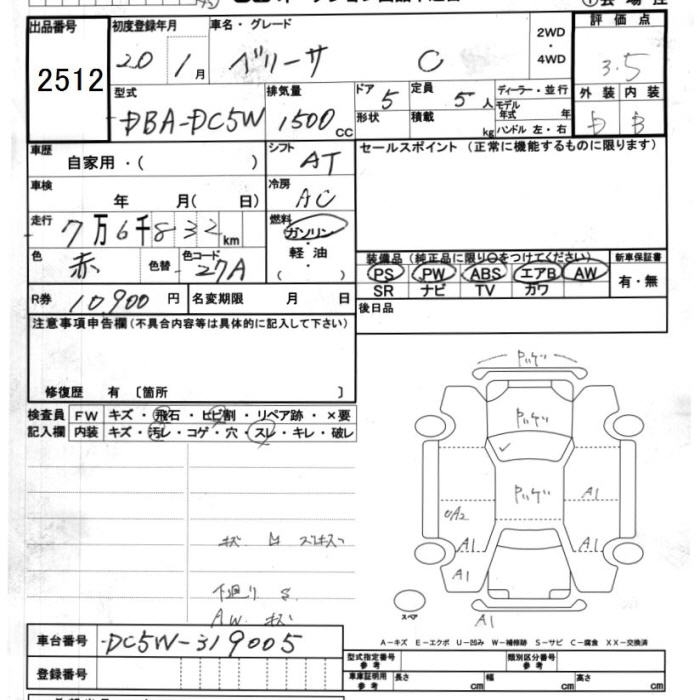 出品番号
2512
初度登録年月
20 1月
車名・グレード
ベリーサ C
2WD
・
4WD
評価点
3.5
型式
DBA-DC5W
排気量
1500 CC
ドア 5
形状
定員 5人
積載 kg
ディーラー・並行
モデル年式 年
ハンドル 左・右
外装 内装
D B
車歴
自家用・( )
シフト AT
セールスポイント (正常に機能するものに限ります)
車検
年 月( 日)
冷房 AC
走行
7万6千832km
燃料
ガソリン
軽油
( )
色 赤
色替
色コード 27A
装備品 (純正品に限り○をつけてください)
PS PW ABS エアB AW
SR ナビ TV カワ
新車保証書
有・無
R券 10900円
名変期限 月 日
後日品
注意事項申告欄(不具合内容等は具体的に記入して下さい)
修復歴 有 〔箇所 〕
検査員
記入欄
FW キズ・飛石・ヒビ割・リペア跡・×要
内装 キズ・汚レ・コゲ・穴・スレ・キレ・破レ
A1
A2
A1
A1
A1
A1
下廻り S
AW キズ
スペア
A-キズ E-エクボ U-凹み W-補修跡 S-サビ C-腐食 XX-交換済
車台番号 DC5W-319005
登録番号
型式指定番号
参考
類別区分番号
参考
車庫証明用
参考
長さ cm
幅 cm
高さ cm